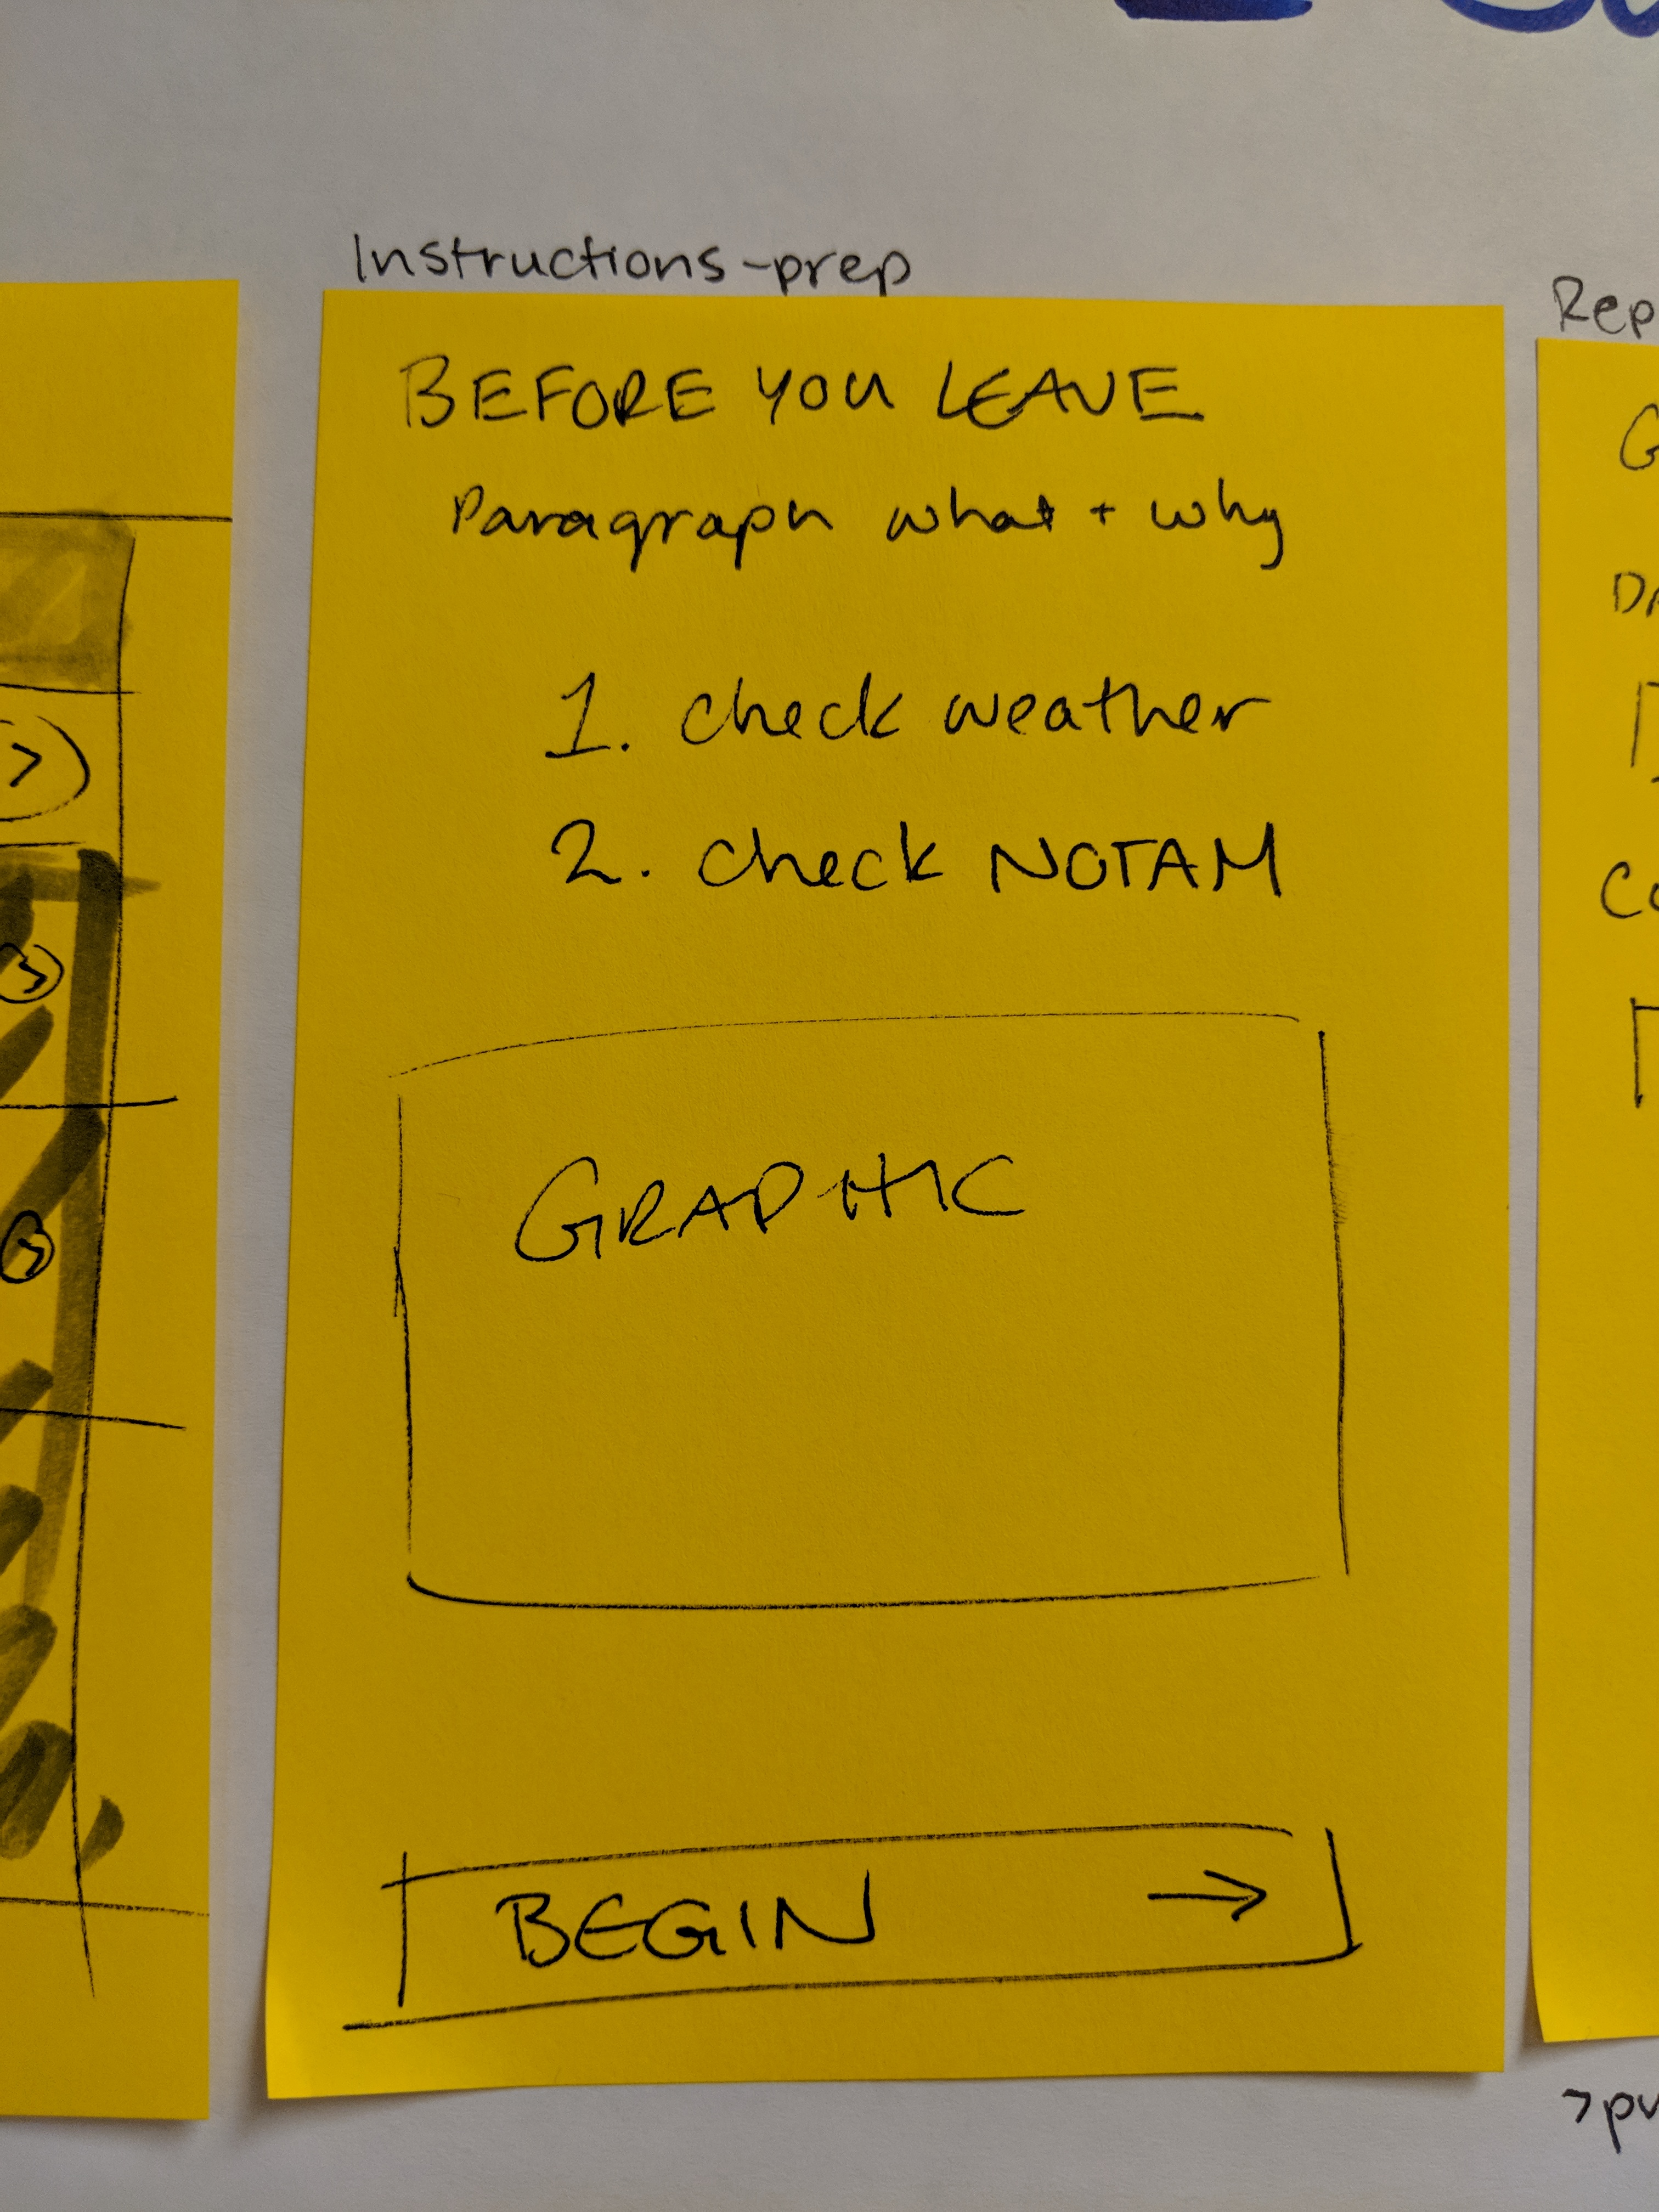 Instructions-prep
BEFORE YOU LEAVE
Paragraph what + why
1. check weather
2. check NOTAM
GRAPHIC
BEGIN →